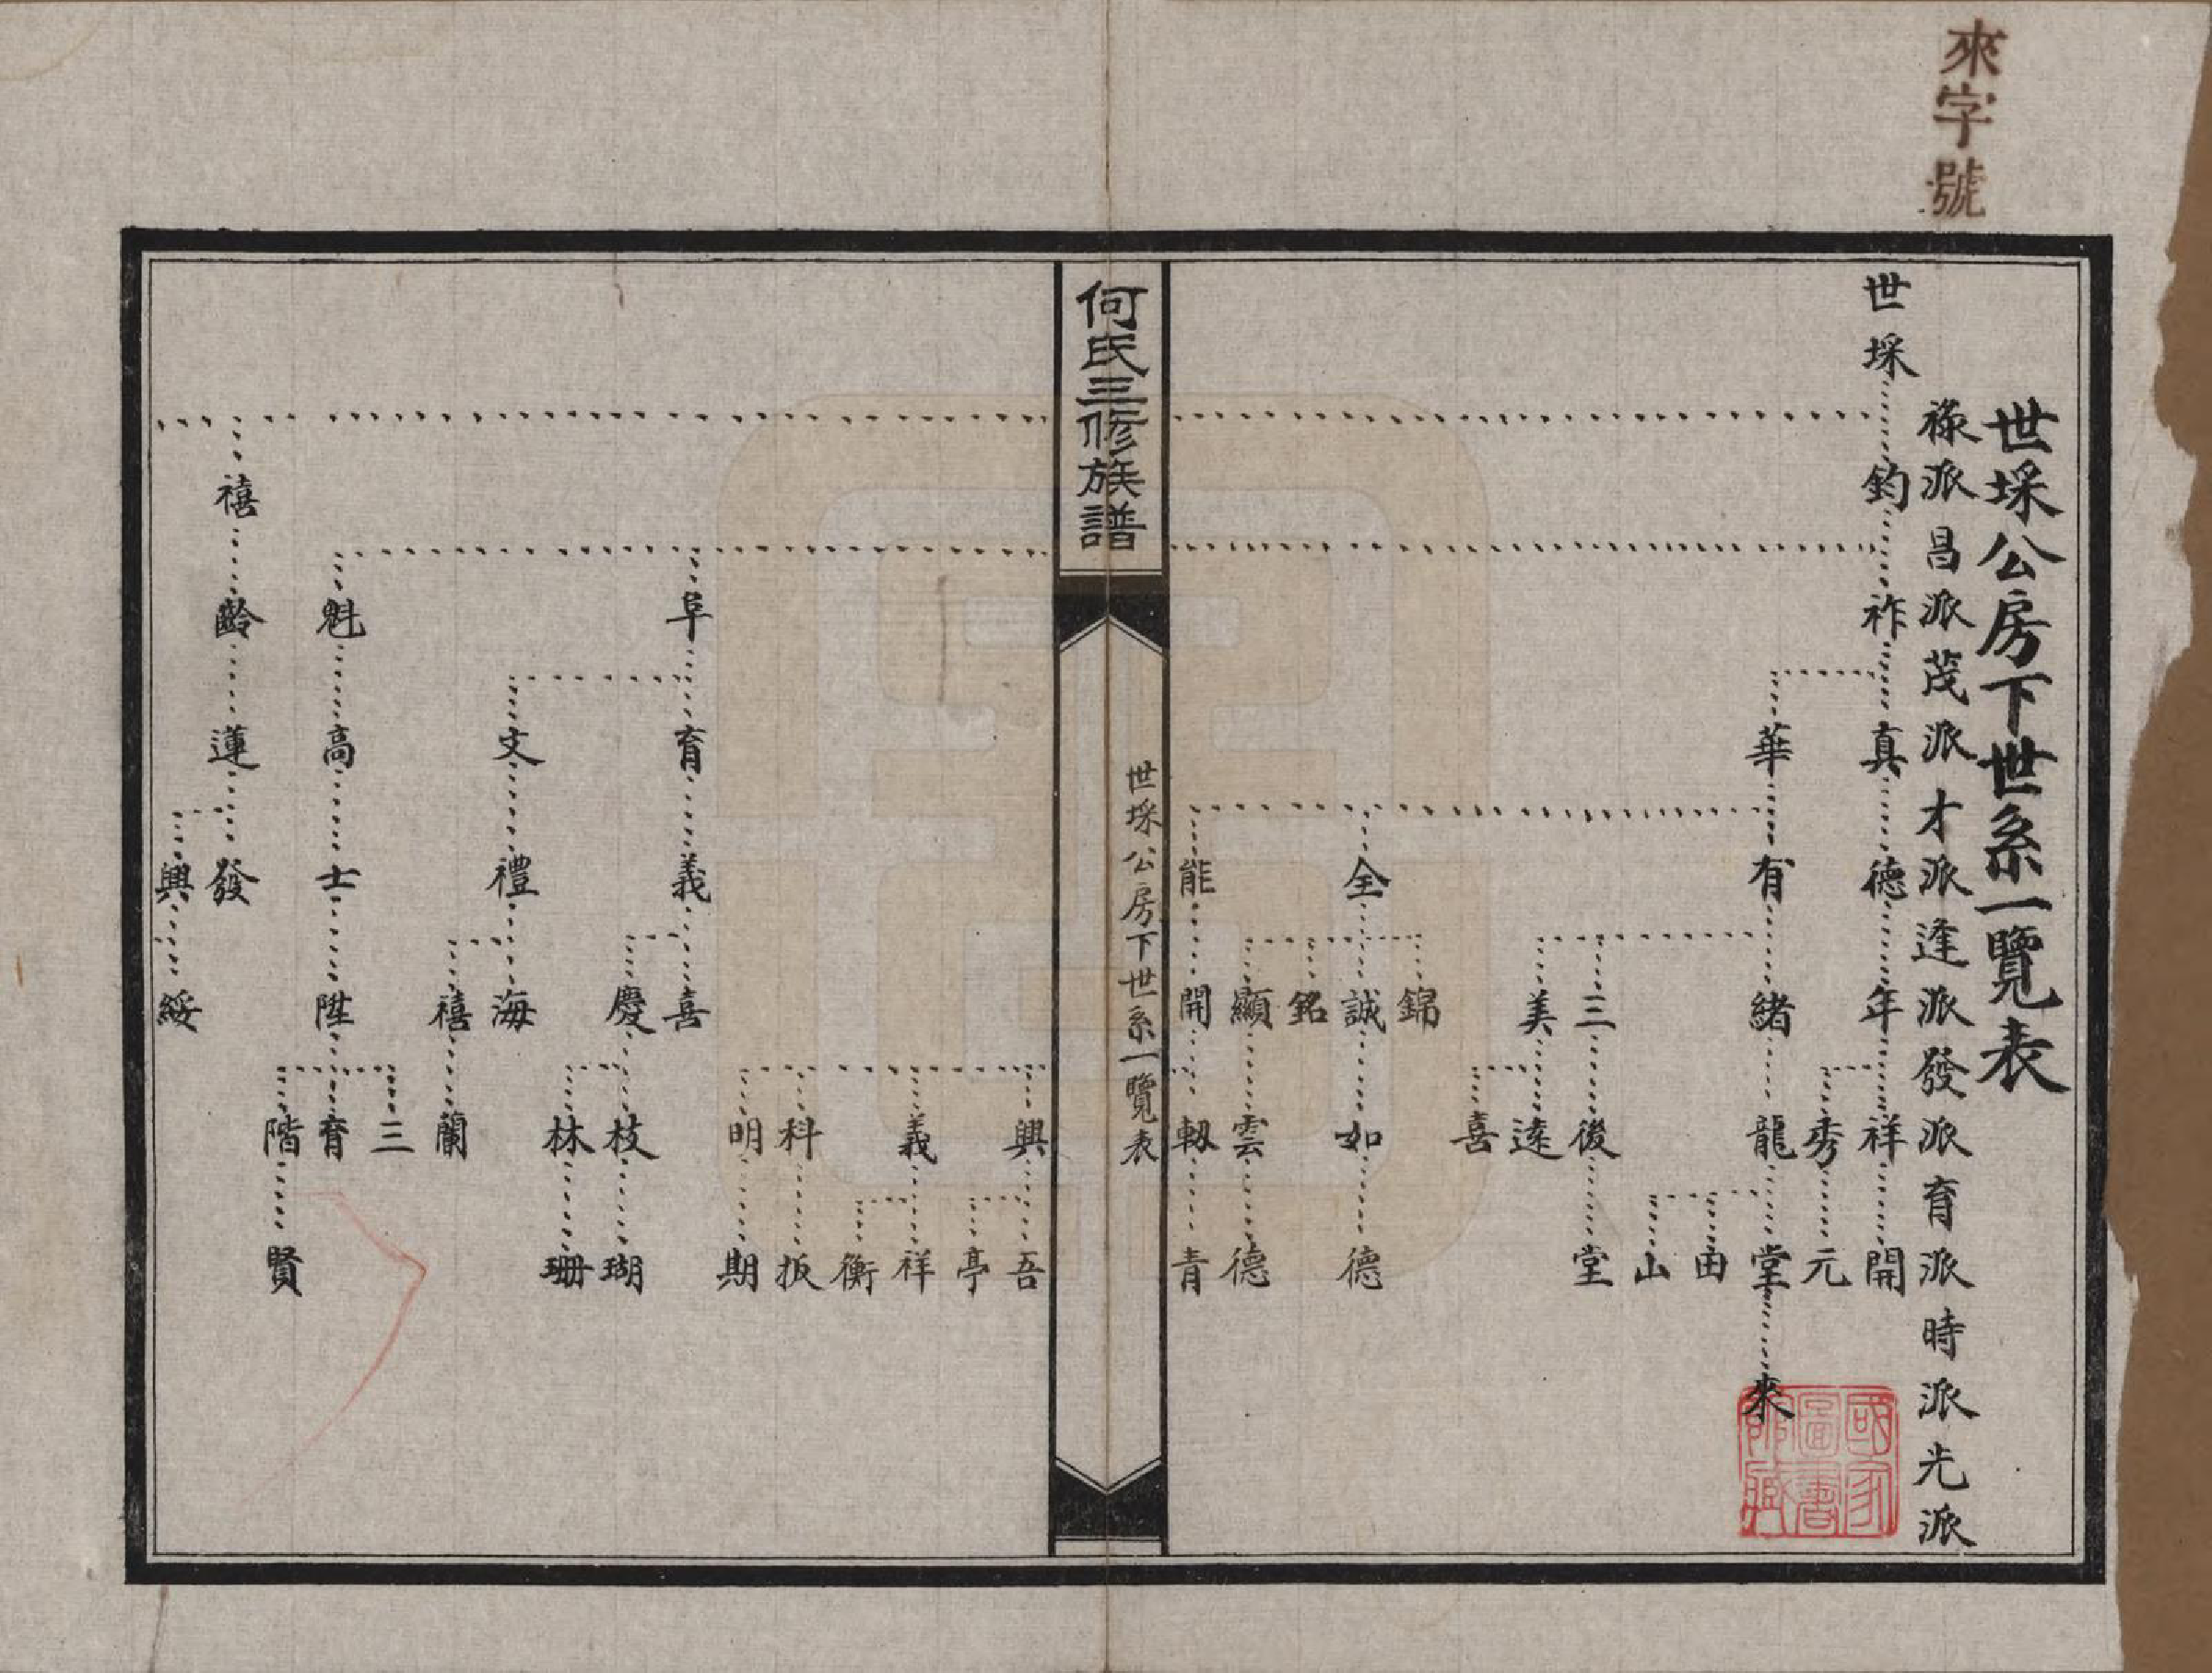 來字號
世埰公房下世系一覽表
祿派昌派茂派才派逢派發派育派時派光派
世埰 鈞 祚 真 德 年 祥 開
秀 元
華 有 緒 龍 堂 來
由
山
三 後 堂
美 逵
喜
錦
全 誠 如 德
銘
顯 雲 德
能 開 韌 青
何氏三修族譜
世埰公房下世系一覽表
興 吾
亭
義 祥
衡
科 扳
明 期
阜 育 義 喜
慶 枝 瑚
林 珊
文 禮 海
禧 蘭
三
魁 高 士 陞 育
階 賢
禧 齡 蓮 發
興 綏
國家圖書館藏